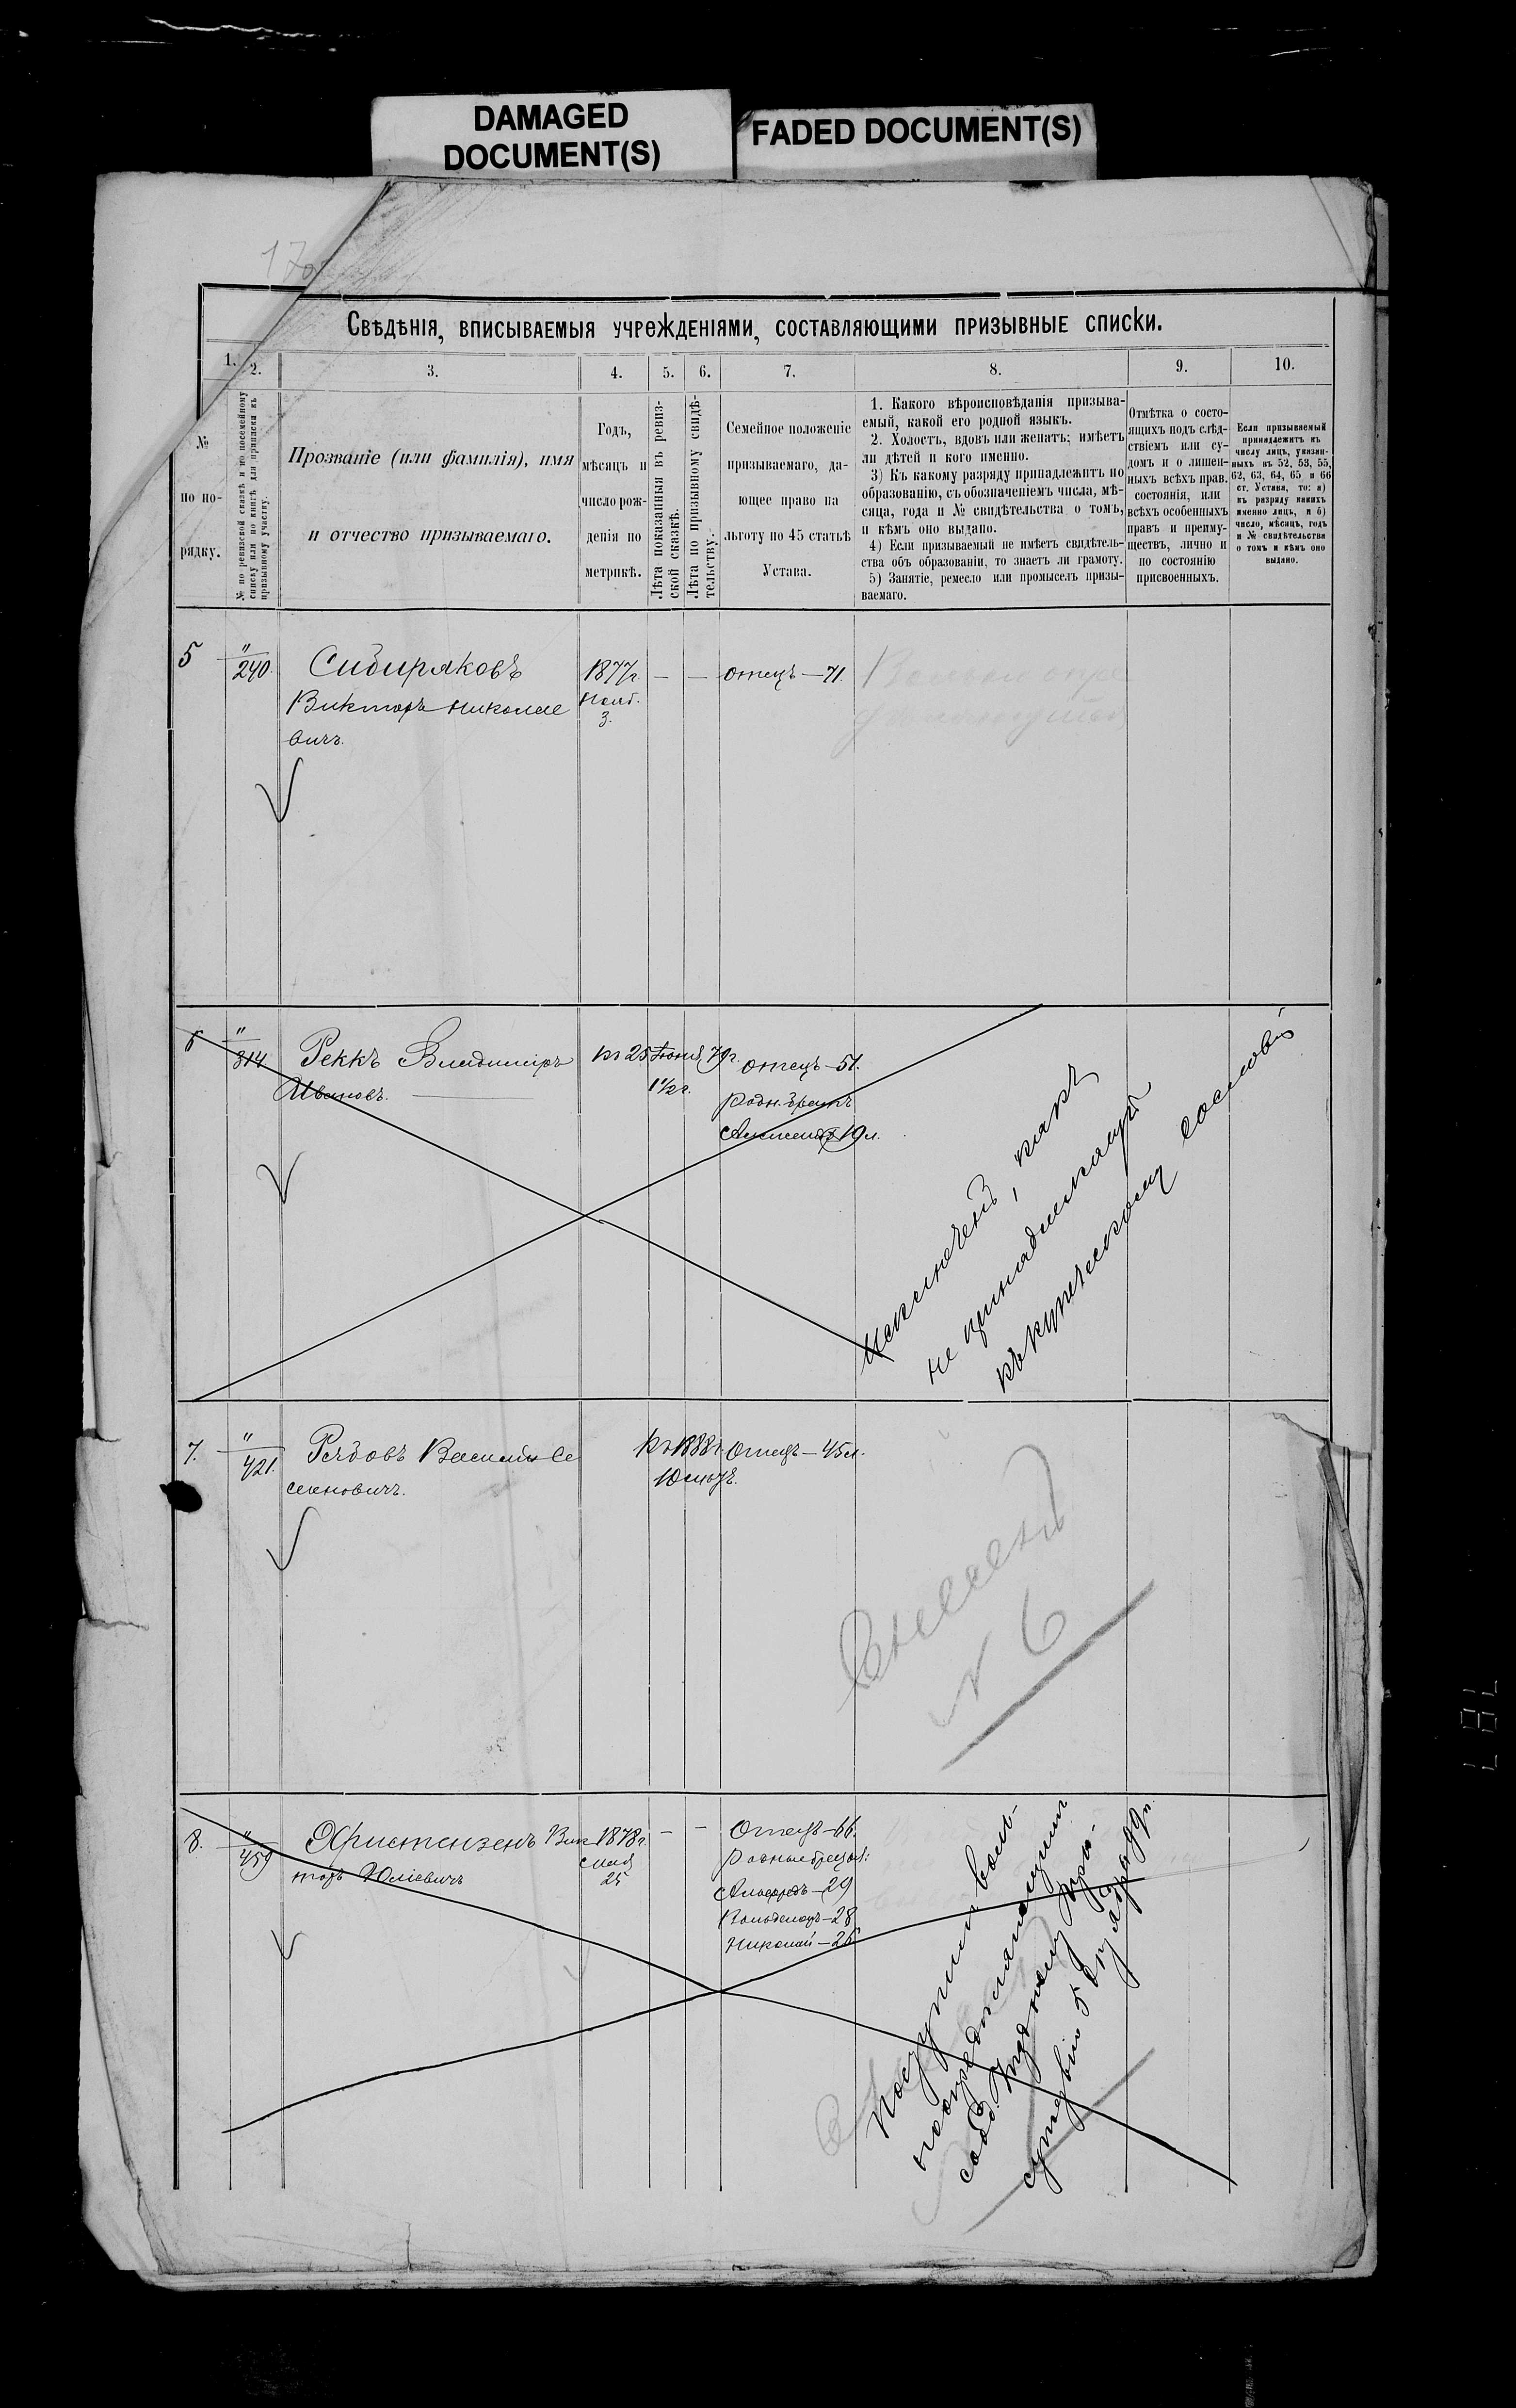 DAMAGED
DOCUMENT(S)
FADED DOCUMENT(S)
170
Свѣдѣнія, вписываемыя учрежденіями, составляющими призывные списки.
1. 2. 3. 4. 5. 6. 7. 8. 9. 10.
№
по по-
рядку.
№ по ревизской сказкѣ и по посемейному
списку или по книгѣ для приписки къ
призывному участку.
Прозваніе (или фамилія), имя
и отчество призываемаго.
Годъ,
мѣсяцъ и
число рож-
денія по
метрикѣ.
Лѣта показанныя въ ревиз-
ской сказкѣ.
Лѣта по призывному свидѣ-
тельству.
Семейное положеніе
призываемаго, да-
ющее право на
льготу по 45 статьѣ
Устава.
1. Какого вѣроисповѣданія призыва-
емый, какой его родной языкъ.
2. Холостъ, вдовъ или женатъ; имѣетъ
ли дѣтей и кого именно.
3) Къ какому разряду принадлежитъ по
образованію, съ обозначеніемъ числа, мѣ-
сяца, года и № свидѣтельства о томъ,
и кѣмъ оно выдано.
4) Если призываемый не имѣетъ свидѣтель-
ства объ образованіи, то знаетъ ли грамоту.
5) Занятіе, ремесло или промыселъ призы-
ваемаго.
Отмѣтка о состо-
ящихъ подъ слѣд-
ствіемъ или су-
домъ и о лишен-
ныхъ всѣхъ прав.
состоянія, или
всѣхъ особенныхъ
правъ и преиму-
ществъ, лично и
по состоянію
присвоенныхъ.
Если призываемый
принадлежитъ къ
числу лицъ, указан-
ныхъ въ 52, 53, 55,
62, 63, 64, 65 и 66
ст. Устава, то: а)
къ разряду какихъ
именно лицъ, и б)
число, мѣсяцъ, годъ
и № свидѣтельства
о томъ и кѣмъ оно
выдано.
5 "/240 Сибиряковъ 1877г. — — отецъ — 71.
Викторъ Николае Нояб.
вичъ. 3.
6 "/314 Реккъ Владиміръ къ 25 Іюня 79г. отецъ — 51.
Ивановъ. 1½ г. родн. братъ
19 л.
исключенъ, какъ
не принадлежащій
къ купеческому сословію
7. "/421. Рябовъ Василій Се Отецъ — 45 л.
меновичъ. 10
№ 6
8. "/459 Христензенъ Вик 1878г. — — Отецъ — 66.
торъ Юліевичъ 25 родные братья:
Альфредъ — 29
Вольдемаръ — 28
Николай — 26
Поступилъ воль-
ноопредѣляющимся
сооб. Уѣздному При-
сутствію 5